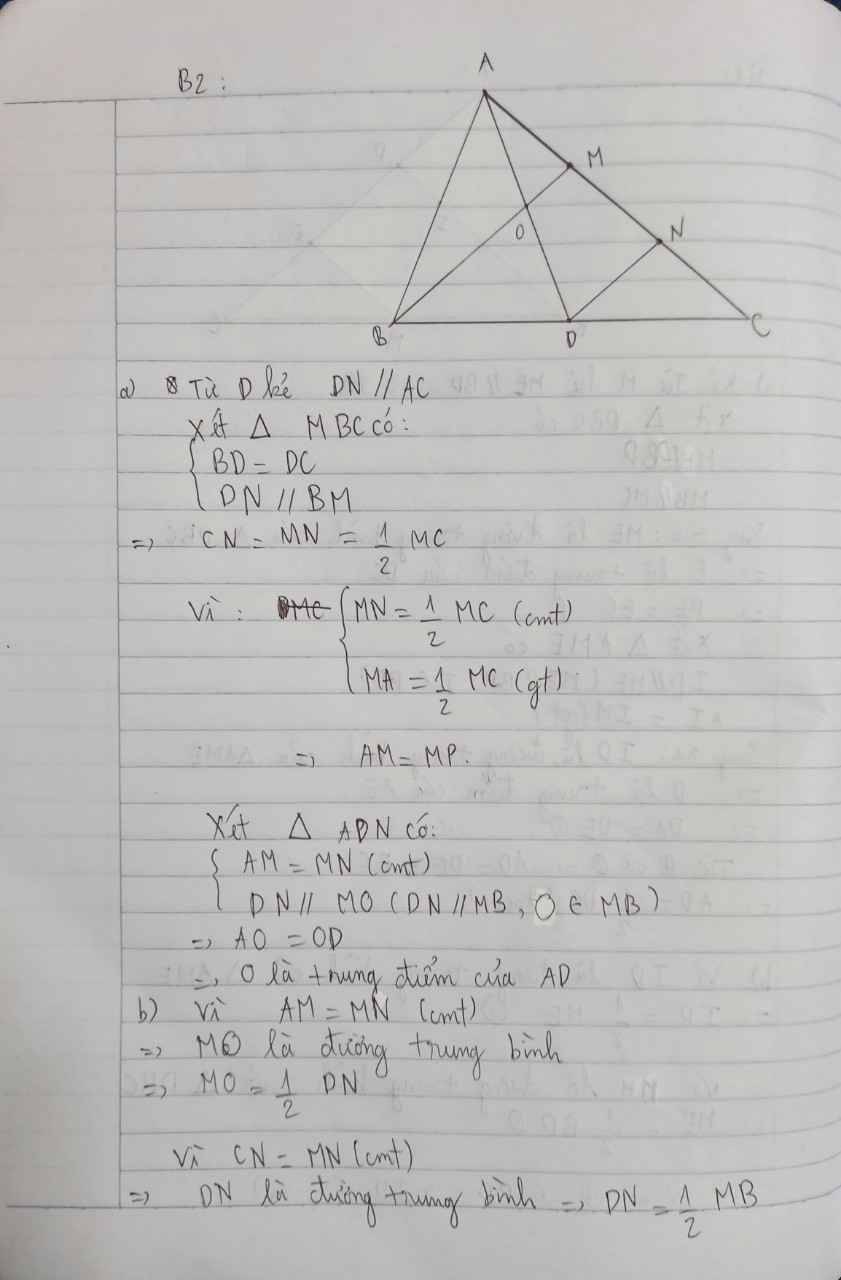 B2 :
A
M
O
N
B
D
C
a) Từ D kẻ DN // AC
Xét Δ MBC có:
BD = DC
DN // BM
=> CN = MN = 1/2 MC
Vì : MN = 1/2 MC (cmt)
MA = 1/2 MC (gt)
=> AM = MP.
Xét Δ ADN có:
AM = MN (cmt)
DN // MO (DN // MB, O ∈ MB)
=> AO = OD
=> O là trung điểm của AD
b) Vì AM = MN (cmt)
=> MO là đường trung bình
=> MO = 1/2 DN
Vì CN = MN (cmt)
=> DN là đường trung bình => DN = 1/2 MB